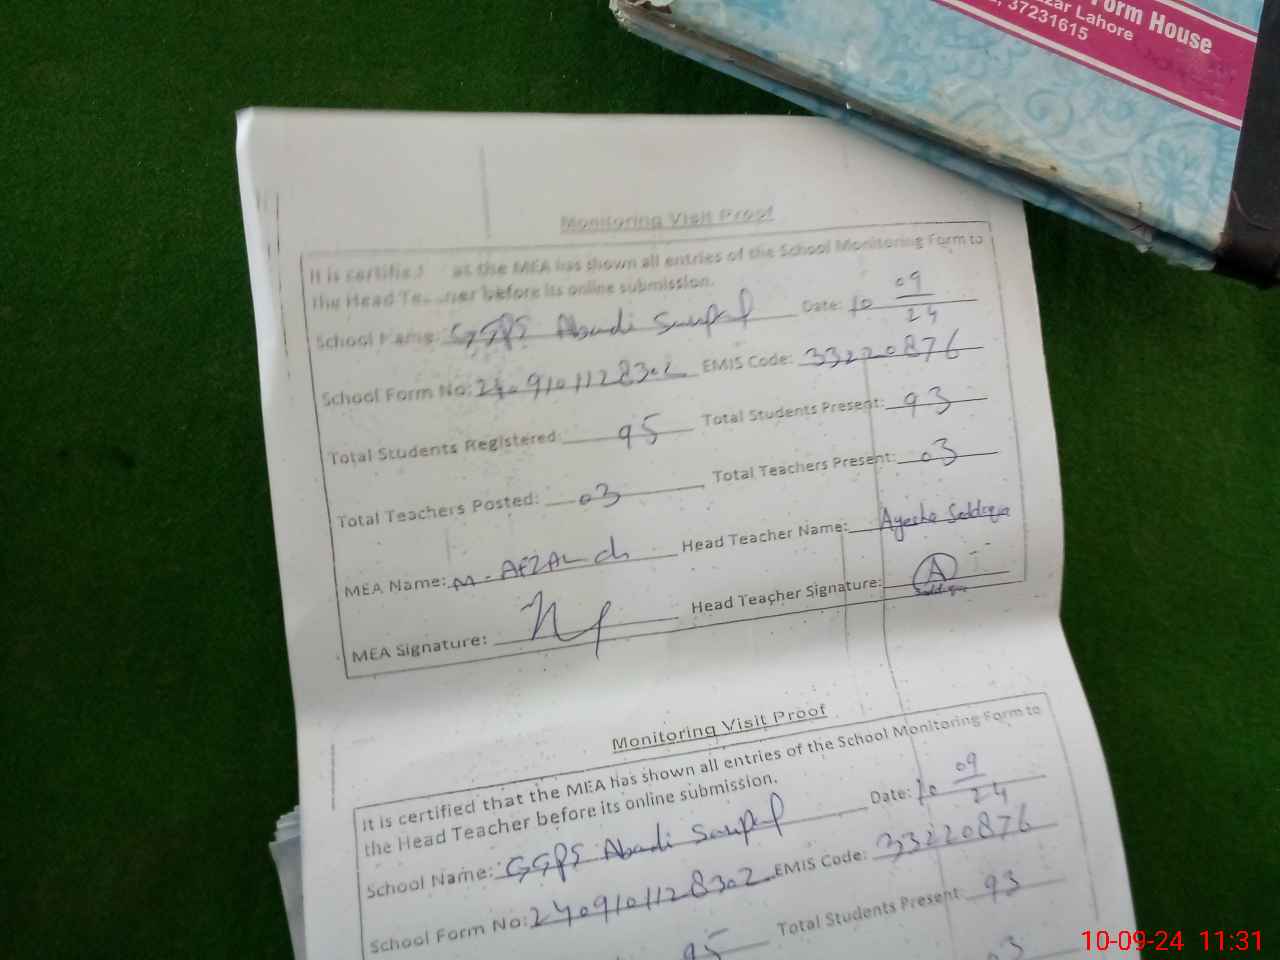 Form House
zar Lahore
37231615
Monitoring Visit Proof
It is certified at the MEA has shown all entries of the School Monitoring Form to
the Head Teacher before its online submission.
School Name: GGPS Abadi Date: 10 09/24
School Form No: 2409101128302 EMIS Code: 33220876
Total Students Registered: 95 Total Students Present: 93
Total Teachers Posted: 03 Total Teachers Present: 03
MEA Name: M. AFZAL ch Head Teacher Name: Ayesha Siddiqa
MEA Signature: Head Teacher Signature: A
Monitoring Visit Proof
It is certified that the MEA has shown all entries of the School Monitoring Form to
the Head Teacher before its online submission.
School Name: GGPS Abadi Date: 10 09/24
School Form No: 2409101128302 EMIS Code: 33220876
95 Total Students Present: 93
03
10-09-24 11:31